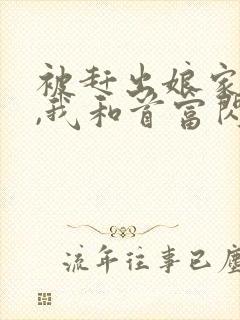 被赶出娘家
,我和首富闪
流年往事已尘